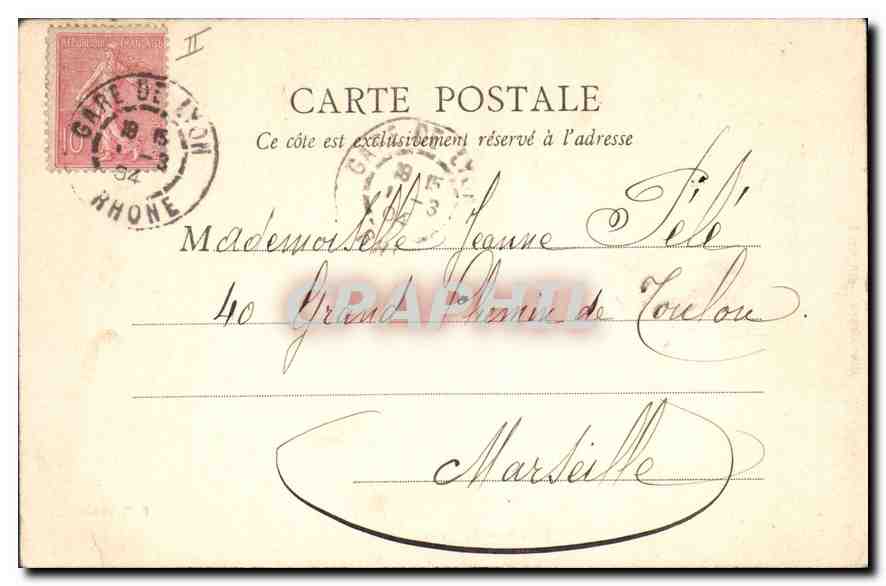 RÉPUBLIQUE FRANÇAISE
10
II
GARE DE LYON
18 15
3
04
RHONE
CARTE POSTALE
Ce côté est exclusivement réservé à l'adresse
Mademoiselle Jeanne Pélé
40 Grand Chemin de Toulon.
CPAPHIL
Marseille